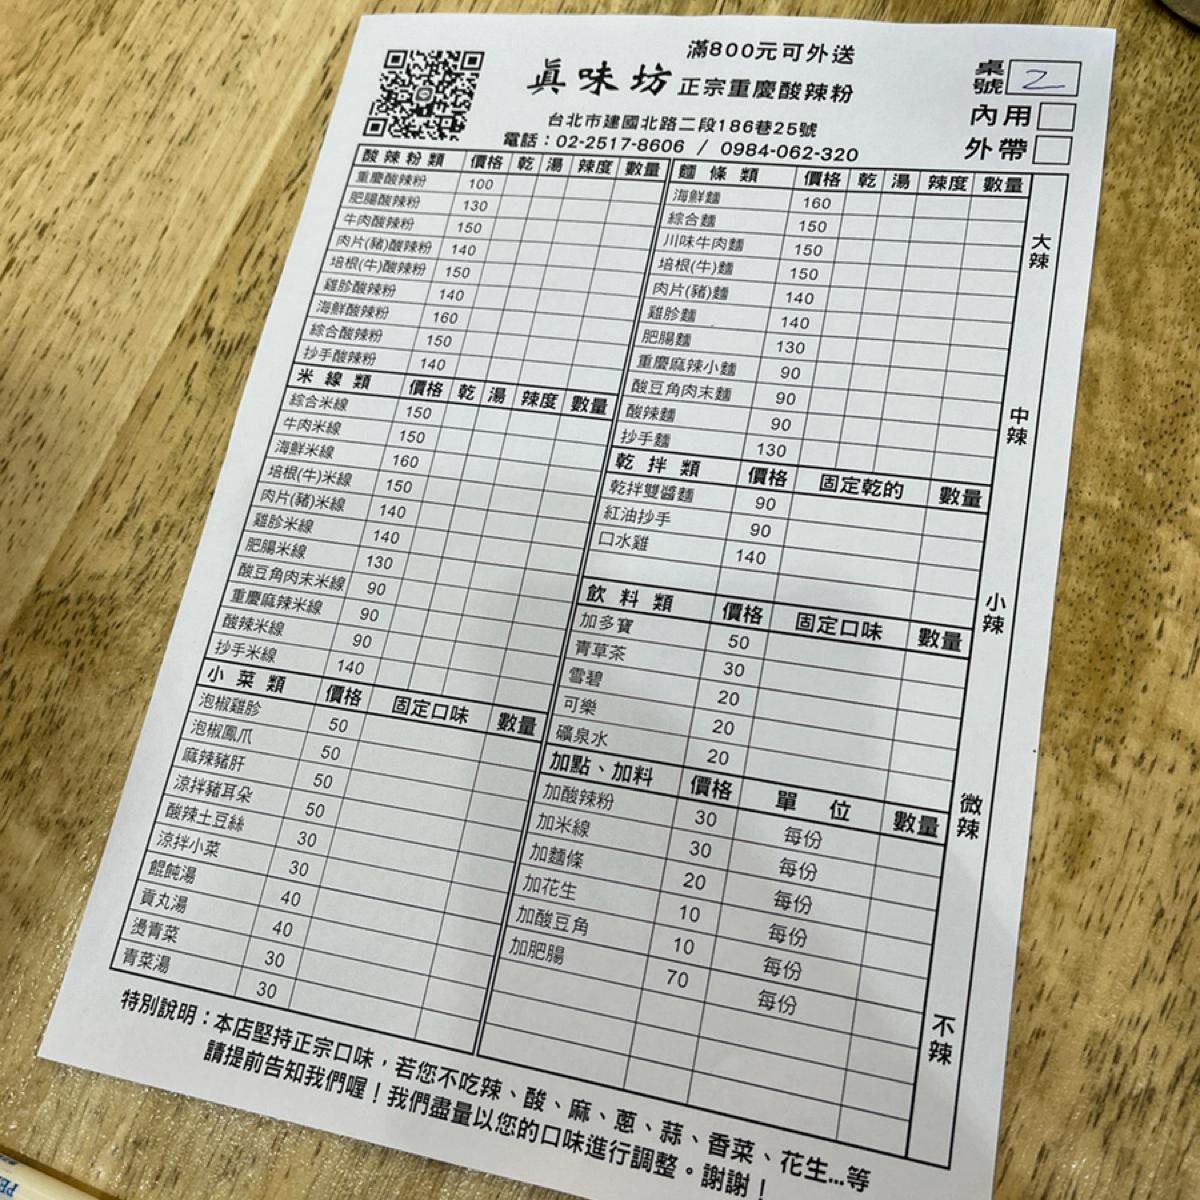 滿800元可外送
真味坊 正宗重慶酸辣粉
台北市建國北路二段186巷25號
電話：02-2517-8606 / 0984-062-320
桌號 2
內用
外帶
酸辣粉類 價格 乾 湯 辣度 數量
重慶酸辣粉 100
肥腸酸辣粉 130
牛肉酸辣粉 150
肉片(豬)酸辣粉 140
培根(牛)酸辣粉 150
雞胗酸辣粉 140
海鮮酸辣粉 160
綜合酸辣粉 150
抄手酸辣粉 140
米線類 價格 乾 湯 辣度 數量
綜合米線 150
牛肉米線 150
海鮮米線 160
培根(牛)米線 150
肉片(豬)米線 140
雞胗米線 140
肥腸米線 130
酸豆角肉末米線 90
重慶麻辣米線 90
酸辣米線 90
抄手米線 140
小菜類 價格 固定口味 數量
泡椒雞胗 50
泡椒鳳爪 50
麻辣豬肝 50
涼拌豬耳朵 50
酸辣土豆絲 30
涼拌小菜 30
餛飩湯 40
貢丸湯 40
燙青菜 30
青菜湯 30
麵條類 價格 乾 湯 辣度 數量
海鮮麵 160
綜合麵 150
川味牛肉麵 150
培根(牛)麵 150
肉片(豬)麵 140
雞胗麵 140
肥腸麵 130
重慶麻辣小麵 90
酸豆角肉末麵 90
酸辣麵 90
抄手麵 130
乾拌類 價格 固定乾的 數量
乾拌雙醬麵 90
紅油抄手 90
口水雞 140
飲料類 價格 固定口味 數量
加多寶 50
青草茶 30
雪碧 20
可樂 20
礦泉水 20
加點、加料 價格 單位 數量
加酸辣粉 30 每份
加米線 30 每份
加麵條 20 每份
加花生 10 每份
加酸豆角 10 每份
加肥腸 70 每份
大辣
中辣
小辣
微辣
不辣
特別說明：本店堅持正宗口味，若您不吃辣、酸、麻、蔥、蒜、香菜、花生...等
請提前告知我們喔！我們盡量以您的口味進行調整。謝謝！